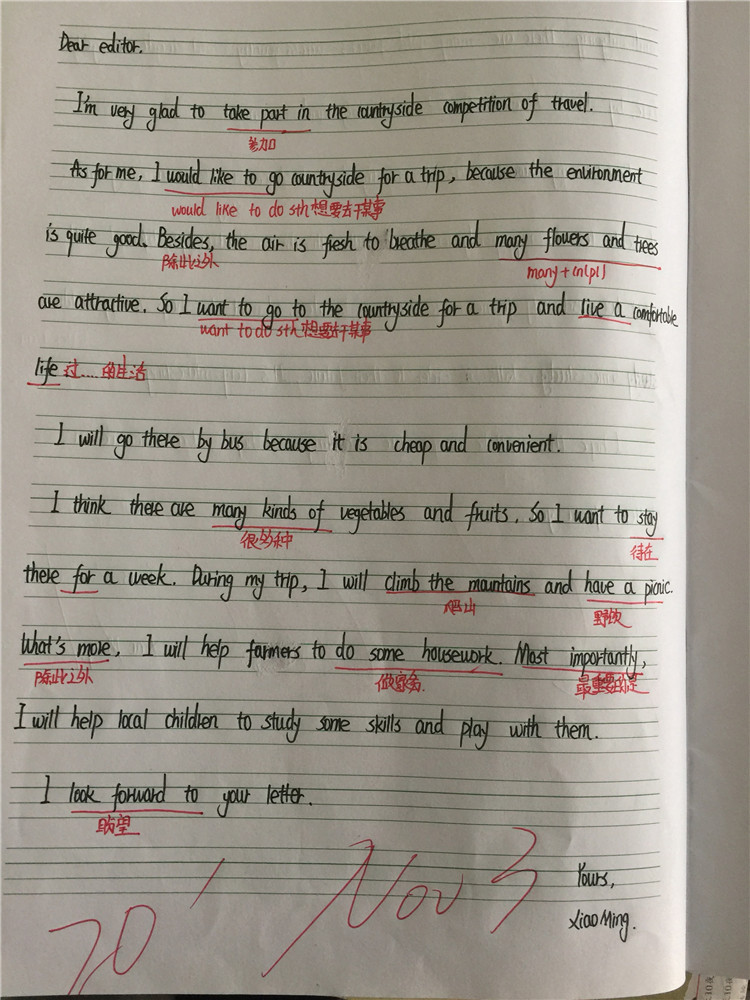 Dear editor.
I'm very glad to take part in the countryside competition of travel.
参加
As for me, I would like to go countryside for a trip, because the environment
would like to do sth 想要去干某事
is quite good. Besides, the air is fresh to breathe and many flowers and trees
除此之外
many + cn(pl)
are attractive. So I want to go to the countryside for a trip and live a comfortable
want to do sth 想要去干某事
life 过....的生活
I will go there by bus because it is cheap and convenient.
I think there are many kinds of vegetables and fruits. So I want to stay
很多种
待在
there for a week. During my trip, I will climb the mountains and have a picnic.
爬山
野炊
What's more, I will help farmers to do some housework. Most importantly,
除此之外
做家务.
最重要的是
I will help local children to study some skills and play with them.
I look forward to your letter.
盼望
Yours,
XiaoMing.
20' Nov 3